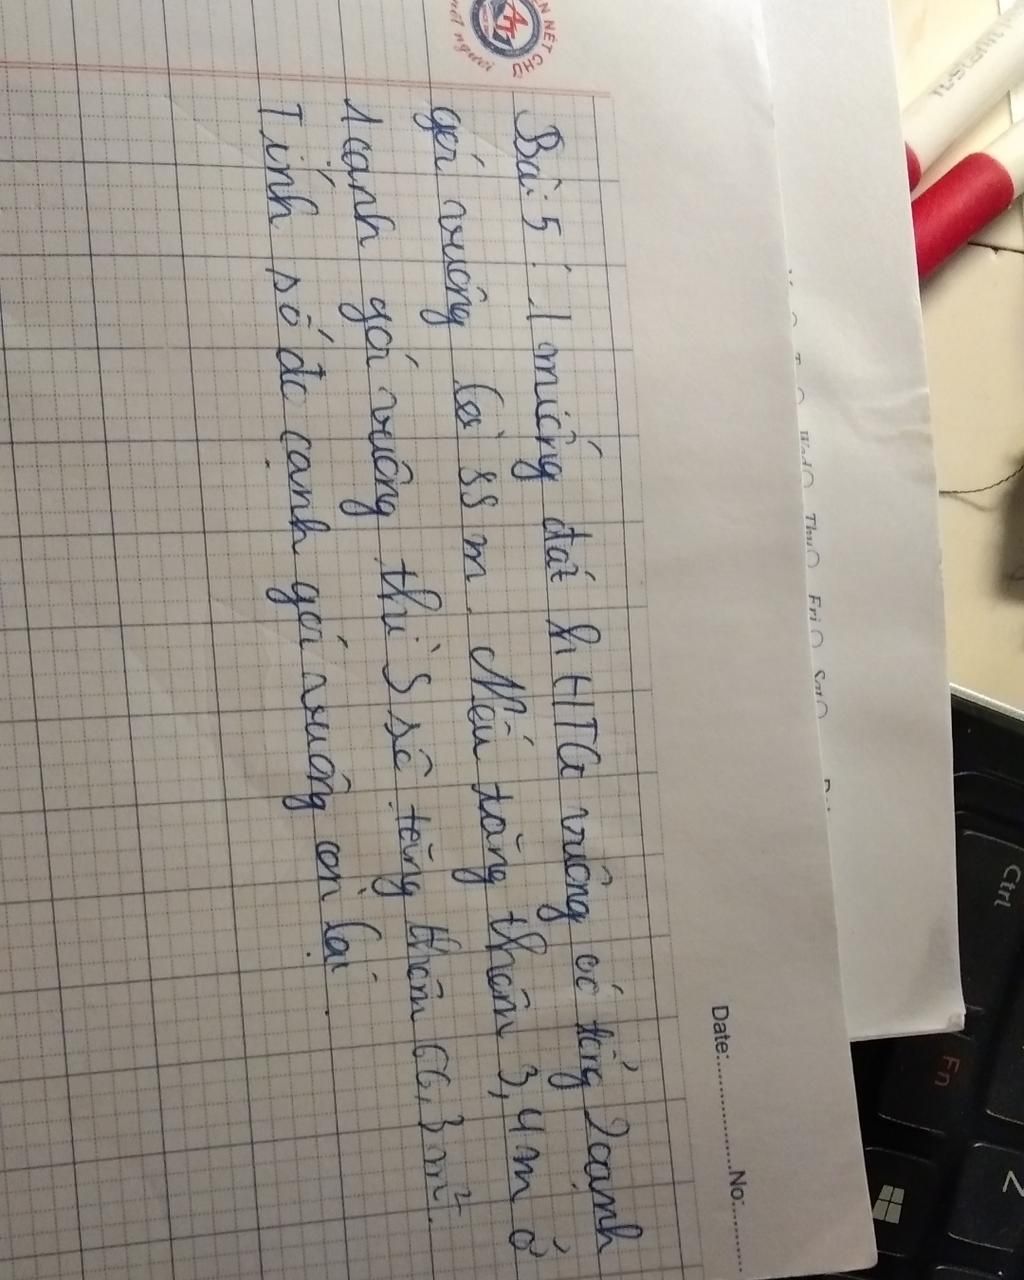 Bài 5: 1 miếng đất hHTG vuông có tổng 2 cạnh
góc vuông là 88 m. Nếu tăng thêm 3,4 m ở
1 cạnh góc vuông thì S sẽ tăng thêm 66,3 m².
Tính số đo cạnh góc vuông còn lại.
Date: No:
NÉT CHỮ
nết người
Wed Thu Fri Sat
TL-5
Ctrl
Fn
Z